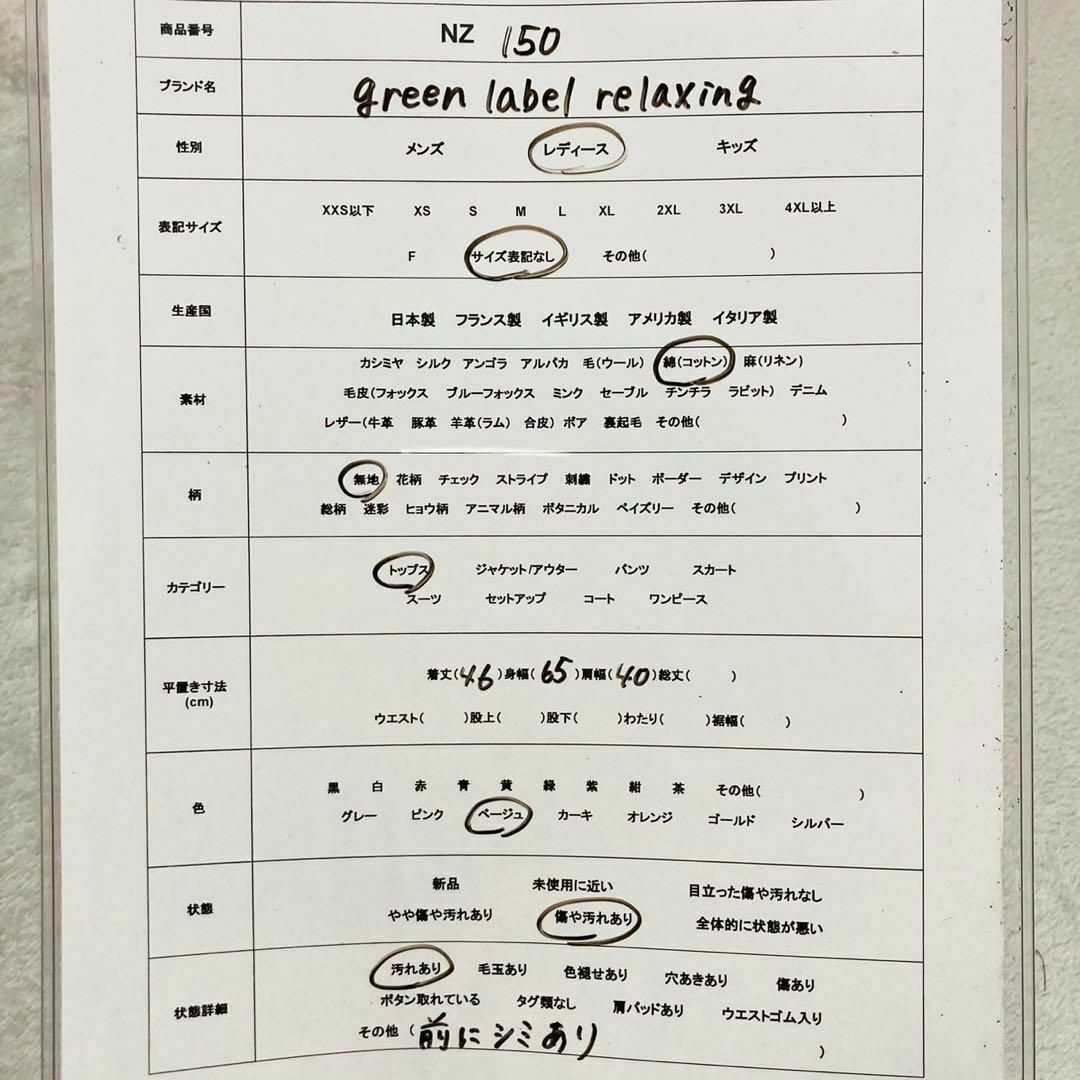 商品番号 NZ 150
ブランド名 green label relaxing
性別 メンズ レディース キッズ
XXS以下 XS S M L XL 2XL 3XL 4XL以上
表記サイズ
F サイズ表記なし その他( )
生産国 日本製 フランス製 イギリス製 アメリカ製 イタリア製
カシミヤ シルク アンゴラ アルパカ 毛(ウール) 綿(コットン) 麻(リネン)
素材 毛皮(フォックス ブルーフォックス ミンク セーブル チンチラ ラビット) デニム
レザー(牛革 豚革 羊革(ラム) 合皮) ボア 裏起毛 その他( )
無地 花柄 チェック ストライプ 刺繍 ドット ボーダー デザイン プリント
柄
総柄 迷彩 ヒョウ柄 アニマル柄 ボタニカル ペイズリー その他( )
トップス ジャケット/アウター パンツ スカート
カテゴリー
スーツ セットアップ コート ワンピース
着丈(46)身幅(65)肩幅(40)総丈( )
平置き寸法
(cm)
ウエスト( )股上( )股下( )わたり( )裾幅( )
黒 白 赤 青 黄 緑 紫 紺 茶 その他( )
色
グレー ピンク ベージュ カーキ オレンジ ゴールド シルバー
新品 未使用に近い 目立った傷や汚れなし
状態
やや傷や汚れあり 傷や汚れあり 全体的に状態が悪い
汚れあり 毛玉あり 色褪せあり 穴あきあり 傷あり
状態詳細 ボタン取れている タグ類なし 肩パッドあり ウエストゴム入り
その他 (前にシミあり )